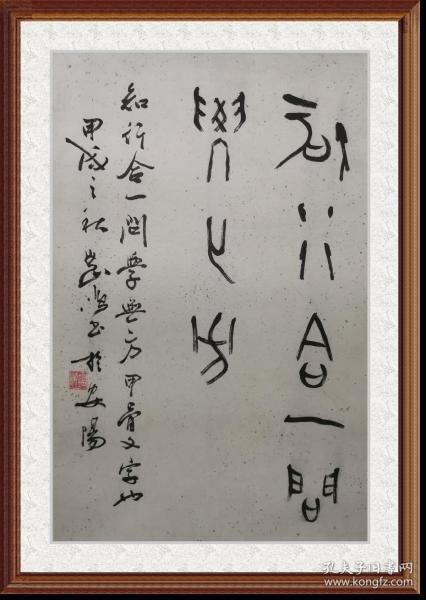 知行合一問
學無方
知行合一問學無方甲骨文字也
甲戌之秋書於安陽
孔夫子旧书网
www.kongfz.com